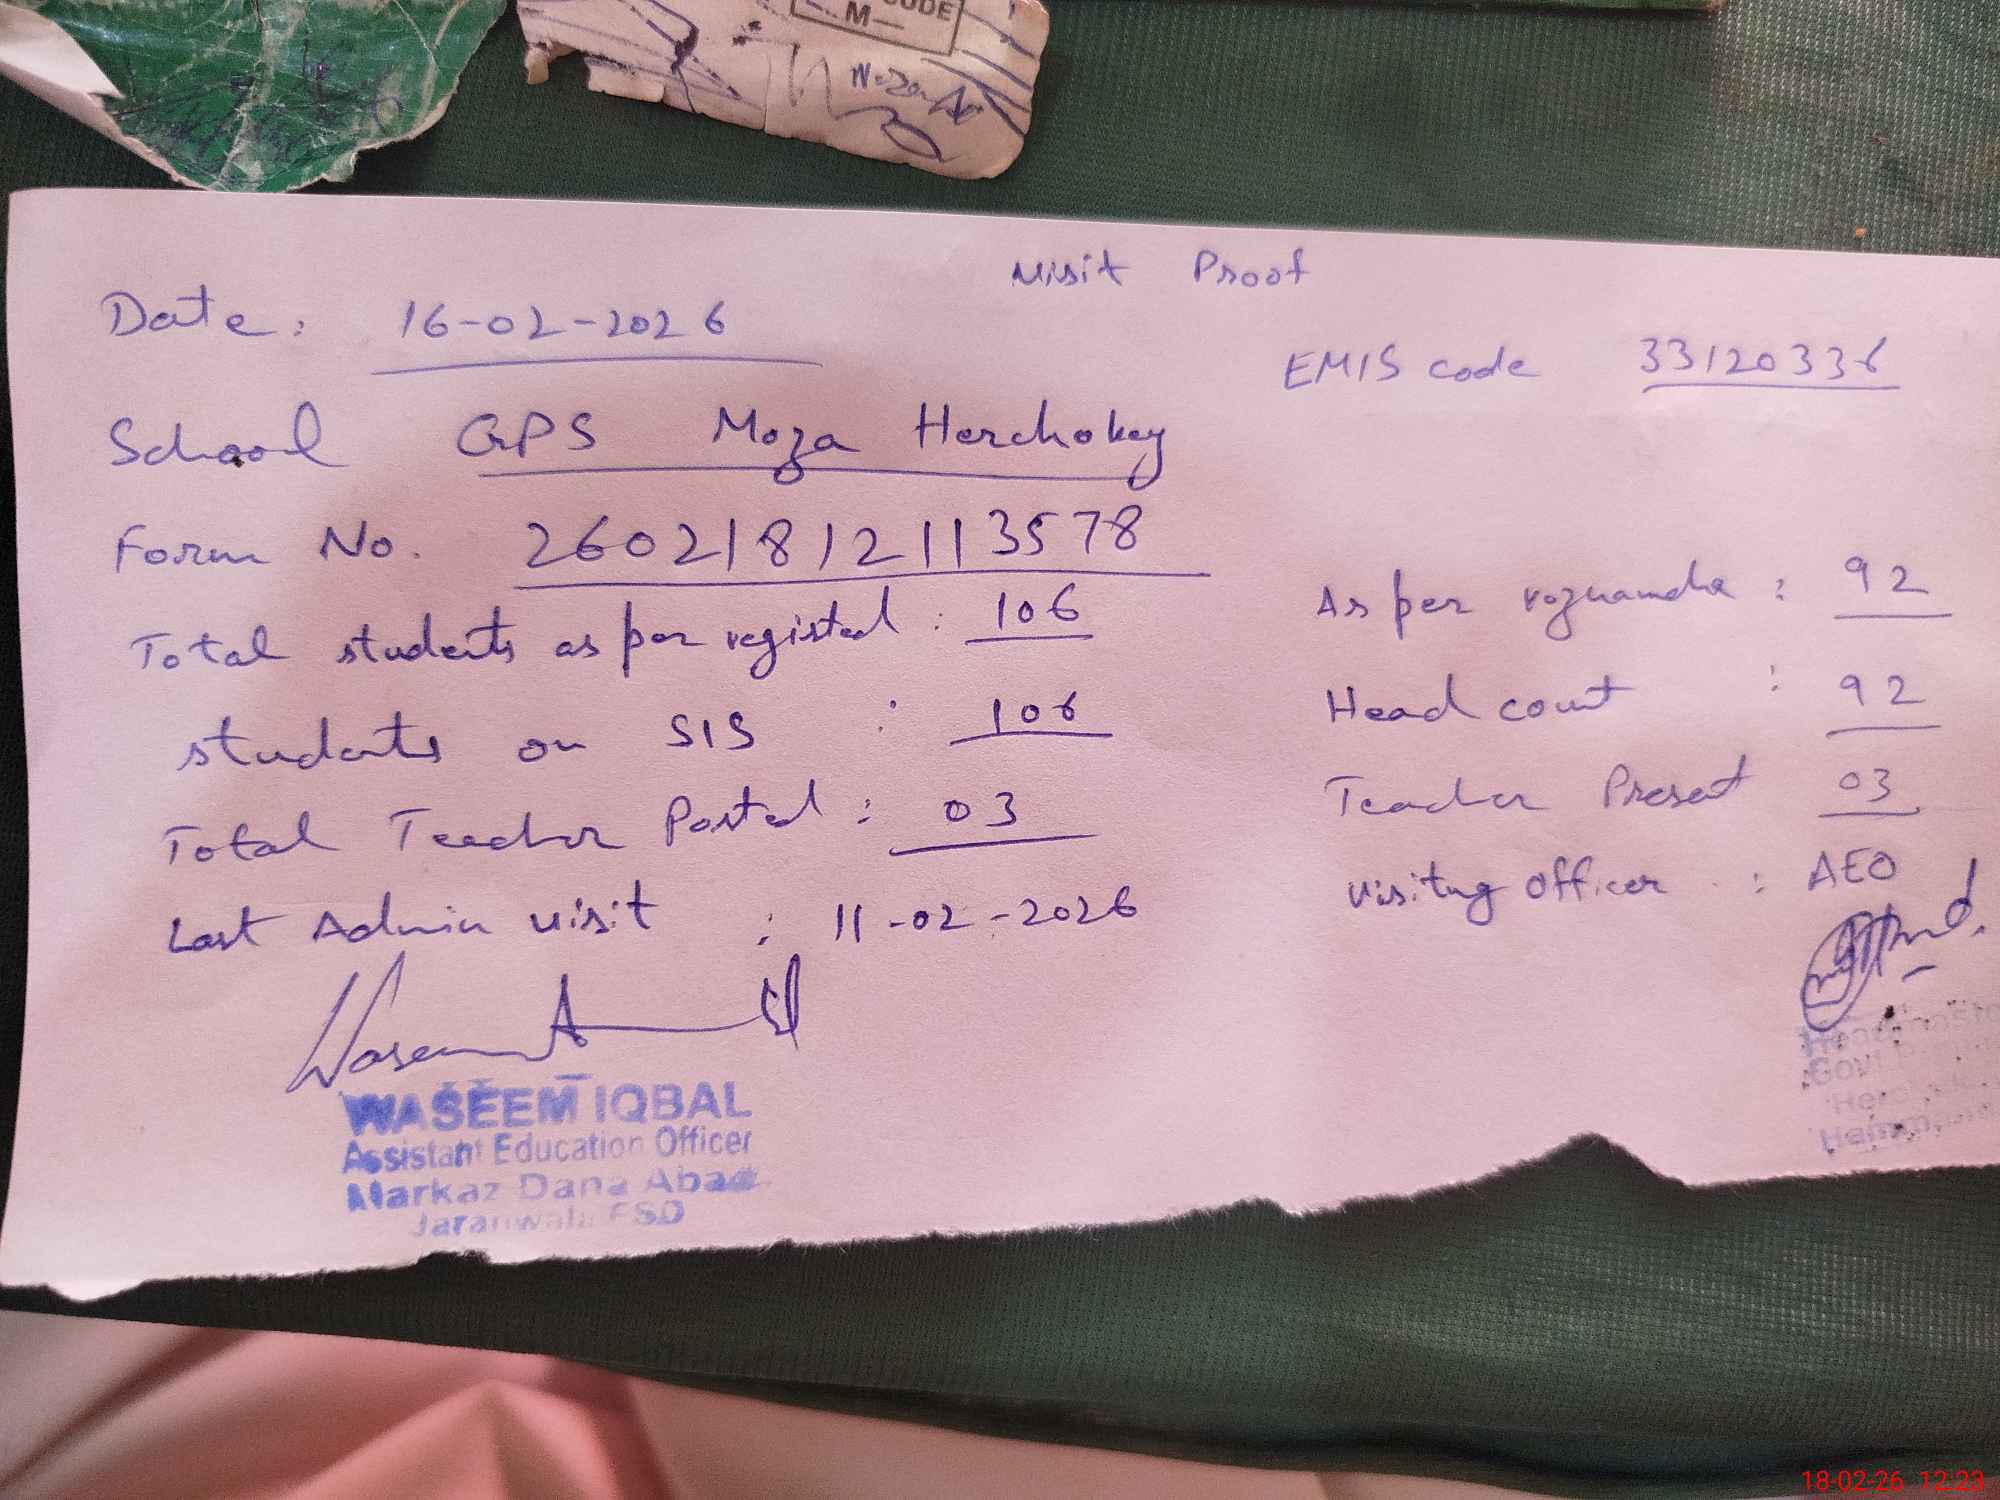 CODE
M—
Visit Proof
Date: 16-02-2026
EMIS code 33120336
School GPS Moza Herchokey
Form No. 26021812113578
Total students as per registed : 106
As per roznamcha : 92
students on SIS : 106
Head count : 92
Total Teacher Posted : 03
Teacher Present 03
Last Admin visit : 11-02-2026
Visiting officer : AEO
WASEEM IQBAL
Assistant Education Officer
Markaz Dana Abad
Jaranwala FSD
Govt
18-02-26 12:23